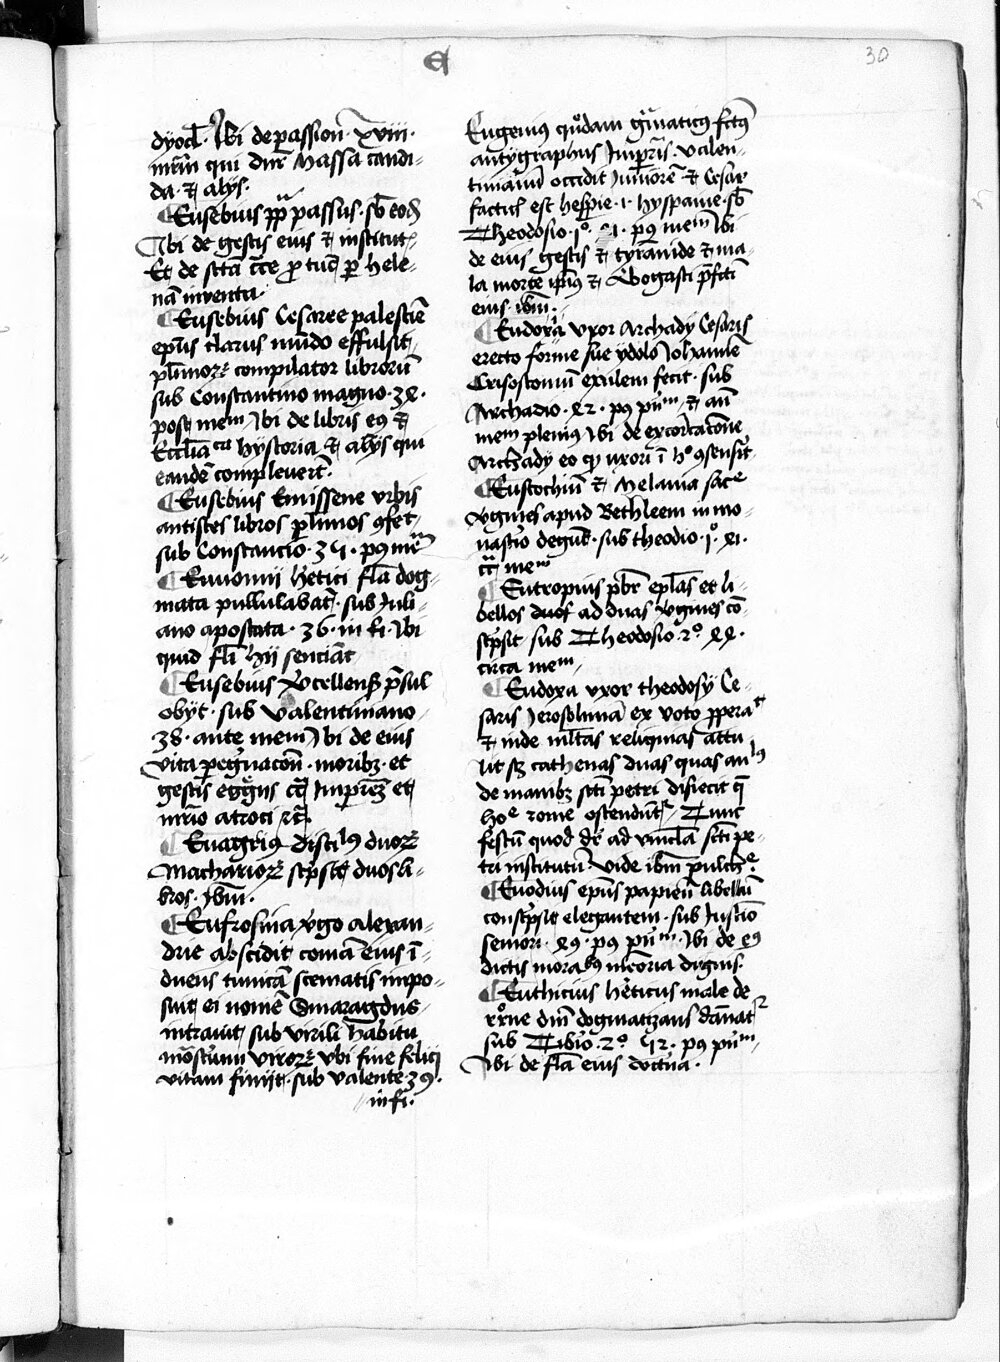 E
30
dyocl. Ibi de passion xviii.
mrm qui dnr Massa candi-
da. et alijs.
Eusebius pp passus. sb eod
Ibi de gestis eius et institut
Et de scta cce p tuc per Hele-
nam inventa.
Eusebius Cesaree palestie
epus clarus mudo effulsit
plimor compilator libroru
sub Constantino magno. 34.
post mem Ibi de libris eius et
Ecclia hystoria et alijs qui
eande complevert.
Eusebius Emissene urbis
antistes libros plimos 9fec
sub Constancio. 35. p9 me
Eunomii hetici fla dog-
mata pullulabat. sub Juli-
ano apostata. 36. in fi. Ibi
quid fli hij senciat
Eusebius Vercellens presul
obijt. sub Valentiniano
38. ante mem Ibi de eius
vita peginacon. moribz et
gestis Impez et
mrio atroci
Euagrius discilus duor
Macharior scpsit duos li-
bros. Ibm.
Eufrosina virgo Alexan-
drie abscidit coma eius i-
duens tunica scematis impo-
suit ei nome Smaragdus
intravit sub virili habitu
mostium viror ubi fine felici
vitam finijt. sub Valente 39.
in fi.
Eugenius quodam gmaticus fctus
antygraphus Impris. Valen-
tinianu occidit Juniore et Cesar
factus est hesperie. i. hyspanie. sb
Theodosio. 1o. 41. p9 mem Ibi
de eius gestis et tyramide et ma-
la morte ipius et Arbogasti pfcti
eius. ibm.
Eudoxia uxor Archady Cesaris
erecto forme sue ydolo Johanne
Crisostomu exulem fecit. sub
Archadio. 42. p9 pium et an
mem plenius Ibi de excoicacone
Archady eo quod uxori i ho 9sensit
Eustochiu et Melania sace
virgines apud Bethleem in mo-
nastio degut. sub theodio. 1o. 41.
cca mem
Eutropius pbr eplas et li-
bellos duos ad duas virgines co-
scpsit sub Theodosio 2o. 44.
circa mem.
Eudoxia uxor theodosy Ce-
saris Jerosolima ex voto ppera
et inde mltas reliquias attu
lit sz cathenas duas quas an
de manibz scti petri disiecit que
ho rome ostendunt Tunc
festu quod dr ad vincla scti pe-
tri institutu. Vide ibm pulch
Euodius epus papien libellu
conscpsit elegantem. sub Justino
seniori. 49. p9 pium. Ibi de eius
dictis moralibus mcoria dignis.
Euthicius heticus male de
rrone dni dogmatizans danat
sub Tibio. 2o. 52. p9 pium.
Ibi de fla eius doctina.